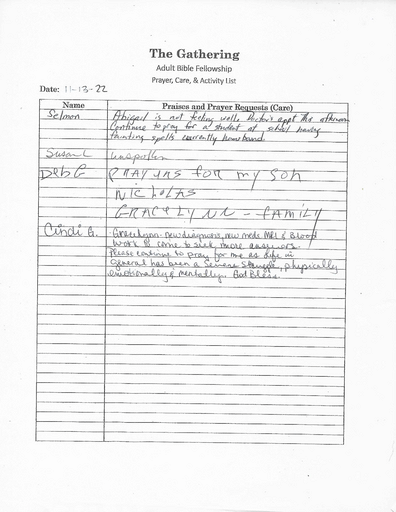 The Gathering
Adult Bible Fellowship
Prayer, Care, & Activity List
Date: 11-13-22
Name Praises and Prayer Requests (Care)
Selmon Abigail is not feeling well. Doctor's appt this afternoon
Continue to pray for a student at school having
fainting spells currently homebound.
Susan L unspoken
Deb G PRAYERS FOR my SON
NICHOLAS
GRACELYNN - FAMILY
Cindi G. Gracelynn-new diagnosis, new meds MRI & Blood
work to come to seek more answers.
Please continue to pray for me as life in
general has been a severe struggle, physically
emotionally & mentally. God Bless.